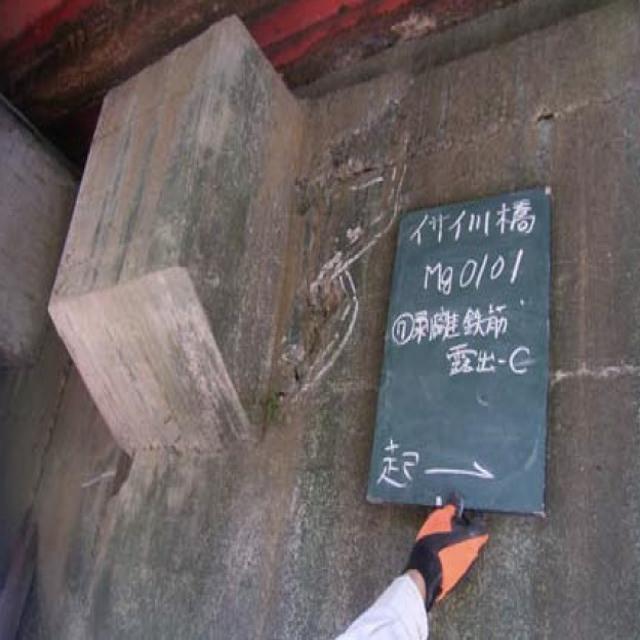 イサイ川橋
Mg0101
⑦剥離鉄筋
露出-C
起→